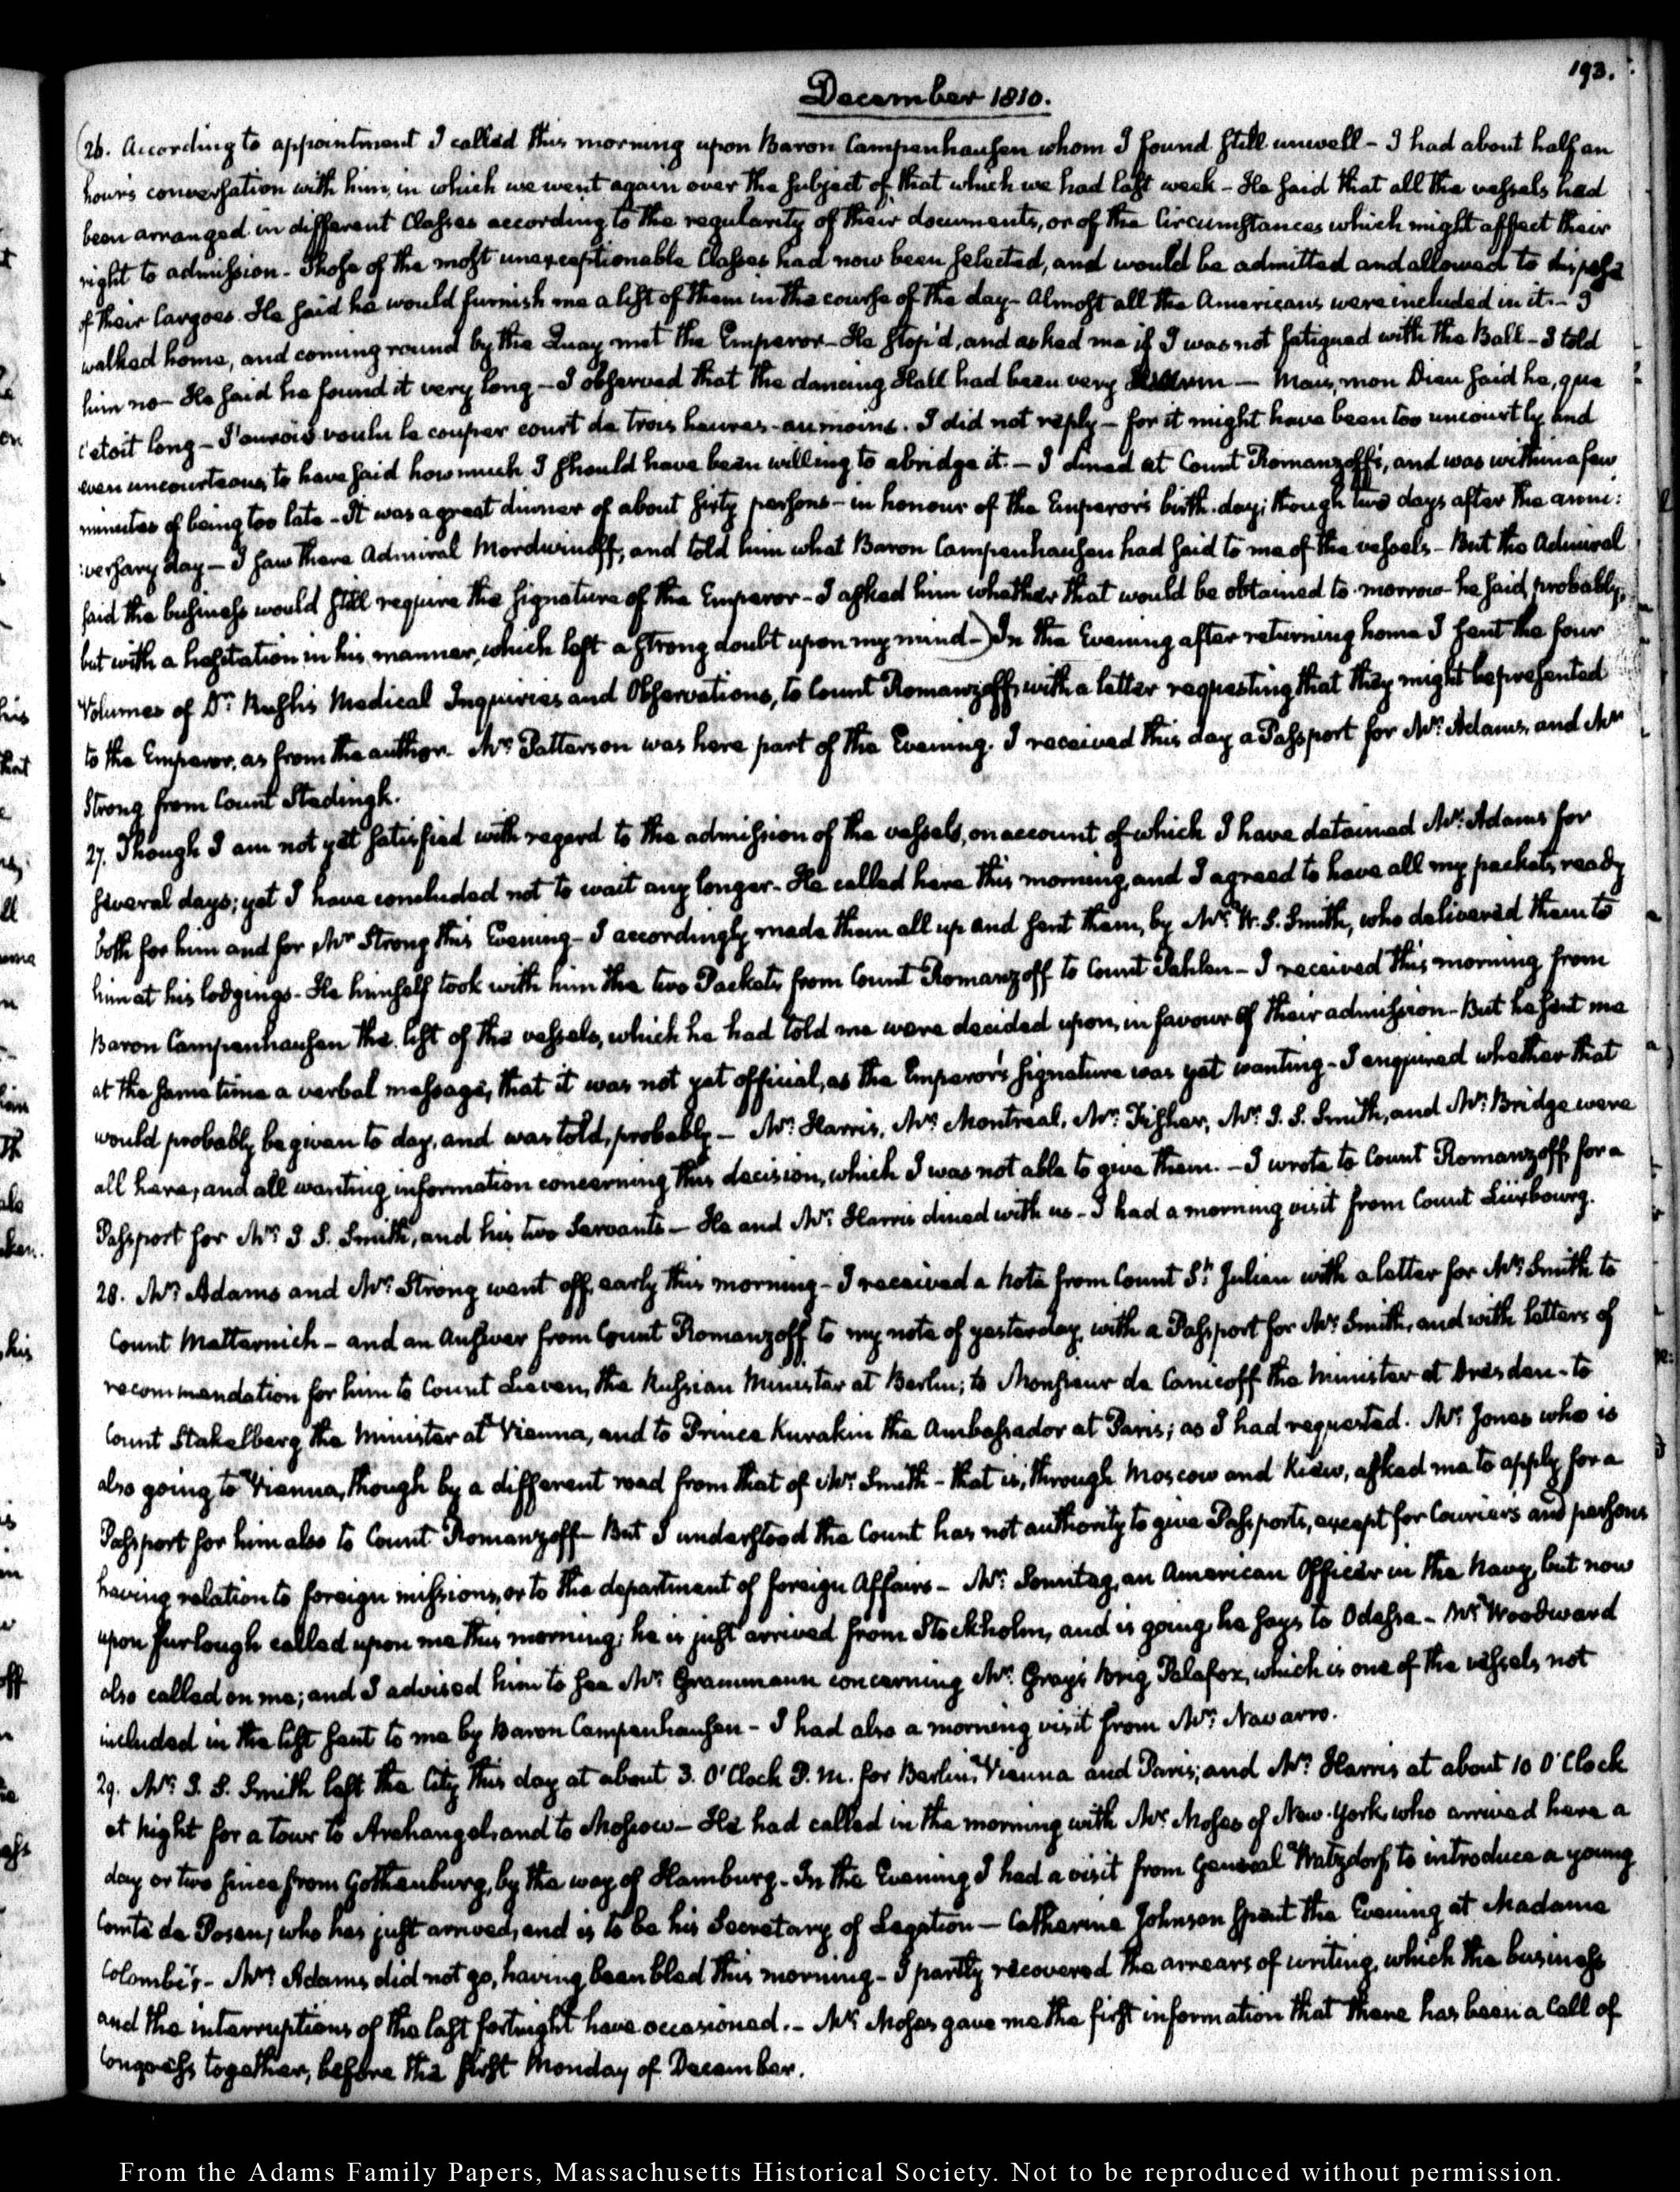 193.
December 1810.
(26. According to appointment I called this morning upon Baron Campenhausen whom I found still unwell – I had about half an
hour's conversation with him, in which we went again over the subject of that which we had last week – He said that all the vessels had
been arranged in different Classes according to the regularity of their documents, or of the Circumstances which might affect their
right to admission – Those of the most unexceptionable Classes had now been selected, and would be admitted and allowed to dispose
of their Cargoes. He said he would furnish me a list of them in the course of the day – Almost all the Americans were included in it. – I
walked home, and coming round by the Quay met the Emperor – He stop'd, and asked me if I was not fatigued with the Ball – I told
him no – He said he found it very long – I observed that the dancing Hall had been very – Mais, mon Dieu said he, que
c'etoit long – J'aurois voulu le couper court de trois heures – au moins. I did not reply – for it might have been too uncourtly and
even uncourteous, to have said how much I should have been willing to abridge it. – I dined at Count Romanzoff's, and was within a few
minutes of being too late – It was a great dinner of about sixty persons – in honour of the Emperor's birth-day; though two days after the anni:
:versary day – I saw there Admiral Mordwinoff, and told him what Baron Campenhausen had said to me of the vessels – But the Admiral
said the business would still require the signature of the Emperor – I asked him whether that would be obtained to-morrow – he said, probably,
but with a hesitation in his manner, which left a strong doubt upon my mind –) In the Evening after returning home I sent the four
Volumes of Dr. Rush's Medical Inquiries and Observations, to Count Romanzoff, with a letter requesting that they might be presented
to the Emperor, as from the author. Mr. Patterson was here part of the Evening. I received this day a Passport for Mr. Adams, and Mr.
Strong from Count Stedingk.
27. Though I am not yet satisfied with regard to the admission of the vessels, on account of which I have detained Mr. Adams for
several days; yet I have concluded not to wait any longer – He called here this morning, and I agreed to have all my packets ready
both for him and for Mr Strong this Evening – I accordingly made them all up and sent them, by Mr. W. S. Smith, who delivered them to
him at his lodgings – He himself took with him the two Packets from Count Romanzoff to Count Pahlen – I received this morning from
Baron Campenhausen the list of the vessels, which he had told me were decided upon, in favour of their admission – But he sent me
at the same time a verbal message, that it was not yet official, as the Emperor's signature was yet wanting – I enquired whether that
would probably be given to day, and was told, probably – Mr. Harris, Mr. Montreal, Mr. Fisher, Mr. J. S. Smith, and Mr. Bridge were
all here, and all wanting information concerning this decision, which I was not able to give them. – I wrote to Count Romanzoff, for a
Passport for Mr. J. S. Smith, and his two Servants – He and Mr. Harris dined with us – I had a morning visit from Count Luxbourg.
28. Mr. Adams and Mr. Strong went off early this morning – I received a Note from Count St. Julien with a letter for Mr. Smith to
Count Metternich – and an Answer from Count Romanzoff to my note of yesterday, with a Passport for Mr. Smith, and with letters of
recommendation for him to Count Lieven, the Russian Minister at Berlin; to Monsieur de Canicoff the Minister at Dresden – to
Count Stakelberg the Minister at Vienna, and to Prince Kurakin the Ambassador at Paris; as I had requested. Mr. Jones who is
also going to Vienna, though by a different road from that of Mr. Smith – that is, through Moscow and Kiew, asked me to apply for a
Passport for him also to Count Romanzoff – But I understood the Count has not authority to give Passports, except for Couriers and persons
having relation to foreign missions, or to the department of foreign Affairs – Mr. Sonntag, an American Officer in the Navy, but now
upon furlough called upon me this morning; he is just arrived from Stockholm, and is going he says to Odessa – Mr. Woodward
also called on me; and I advised him to see Mr. Grammann concerning Mr. Gray's brig Palafox, which is one of the vessels not
included in the list sent to me by Baron Campenhausen – I had also a morning visit from Mr. Navarro.
29. Mr. J. S. Smith left the City this day at about 3. O'Clock P.M. for Berlin, Vienna and Paris; and Mr. Harris at about 10 O'Clock
at Night for a tour to Archangel, and to Moscow – He had called in the morning with Mr. Moses of New-York, who arrived here a
day or two since from Gothenburg, by the way of Hamburg – In the Evening I had a visit from General Watzdorf, to introduce a young
Comte de Posen, who has just arrived, and is to be his Secretary of Legation – Catherine Johnson spent the Evening at Madame
Colombi's – Mrs. Adams did not go, having been bled this morning – I partly recovered the arrears of writing, which the business
and the interruptions of the last fortnight have occasioned. – Mr. Moses gave me the first information that there has been a Call of
Congress together, before the first Monday of December.
From the Adams Family Papers, Massachusetts Historical Society. Not to be reproduced without permission.